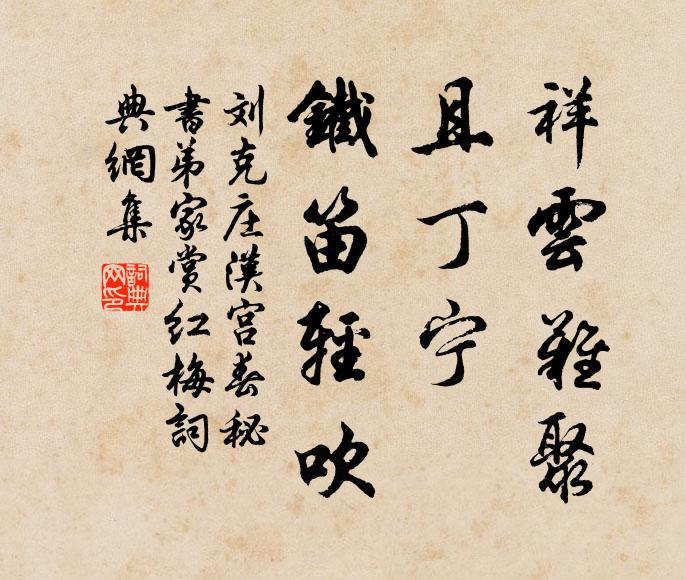 祥雲難聚
且丁宁
鐵笛輕吹
刘克庄漢宫春秘
書弟家赏红梅詞
典網集
詞典网印